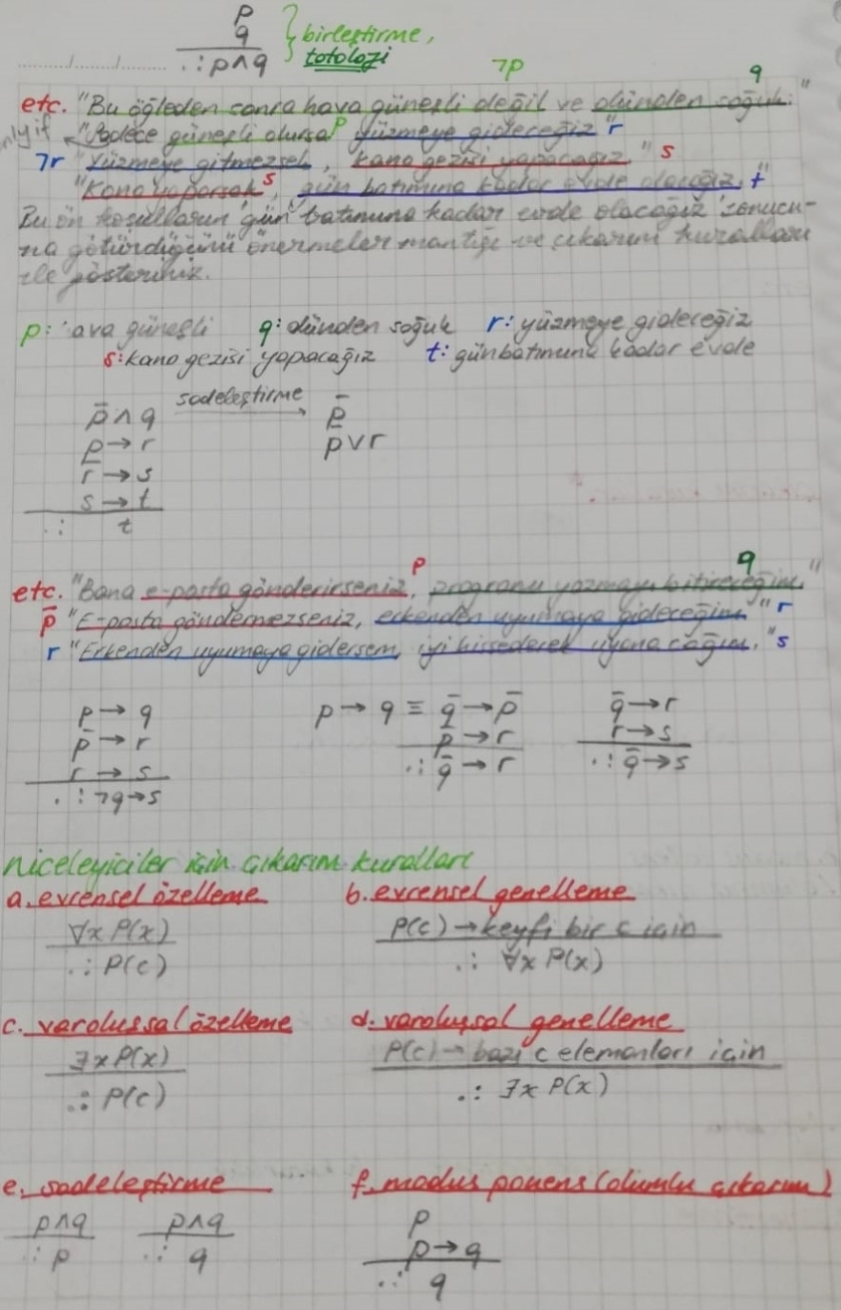 p
q
∴ p∧q
birleştirme,
totoloji
¬p q
etc. "Bu öğleden sonra hava güneşli değil ve dünden soğuk."
only if "Sadece güneşli olursa p yüzmeye gideceğiz" r
¬r "Yüzmeye gitmezsek, kano gezisi yapacağız." s
"Kano yaparsak s, gün batımına kadar evde olacağız." t
Bu ön koşulların 'gün batımına kadar evde olacağız' sonucu-
na götürdüğünü önermeler mantığı ve çıkarım kuralları
ile gösteriniz.
p: hava güneşli q: dünden soğuk r: yüzmeye gideceğiz
s: kano gezisi yapacağız t: günbatımına kadar evde
p̄ ∧ q sadeleştirme → p̄
p → r p ∨ r
r̄ → s
s → t
∴ t
p q
etc. "Bana e-posta gönderirseniz, programı yazmayı bitireceğim."
p̄ "E-posta göndemezseniz, erkenden uyumaya gideceğim" r
r "Erkenden uyumaya gidersem, iyi hissederek uyanacağım." s
p → q p → q ≡ q̄ → p̄ q̄ → r
p̄ → r p̄ → r r → s
r → s ∴ q̄ → r ∴ q̄ → s
∴ ¬q → s
niceleyiciler için çıkarım kuralları
a. evrensel özelleme b. evrensel genelleme
∀x P(x) P(c) → keyfi bir c için
∴ P(c) ∴ ∀x P(x)
c. varolussal özelleme d. varoluşsal genelleme
∃x P(x) P(c) → bazı c elemanları için
∴ P(c) ∴ ∃x P(x)
e. sadeleştirme f. modus ponens (olumlu çıkarım)
p∧q p∧q p
∴ p ∴ q p → q
∴ q